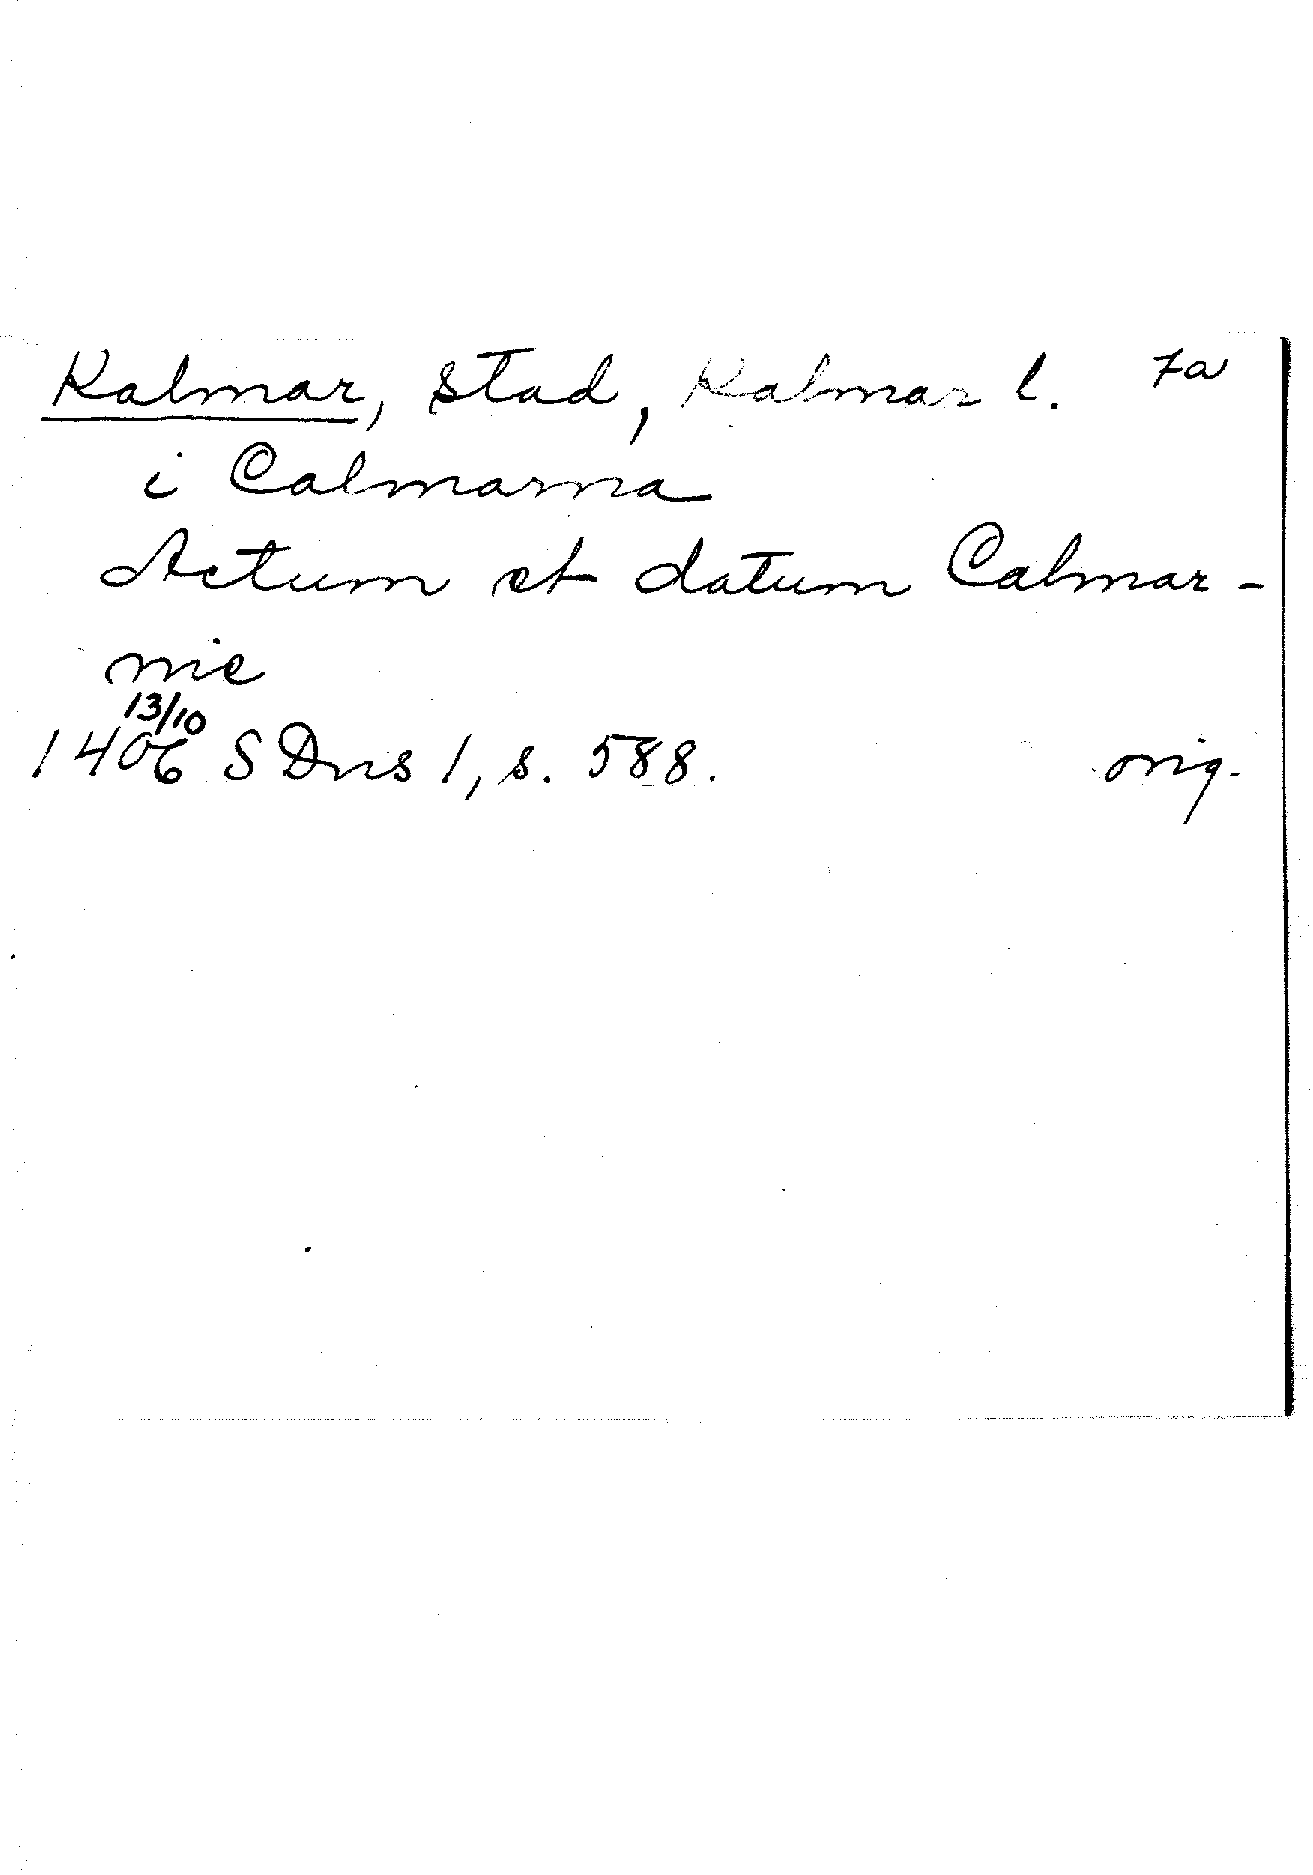 Kalmar, stad, Kalmar l. 7a
i Calmarna
Actum et datum Calmar-
nie
13/10
1406 SDns 1, s. 588. orig.